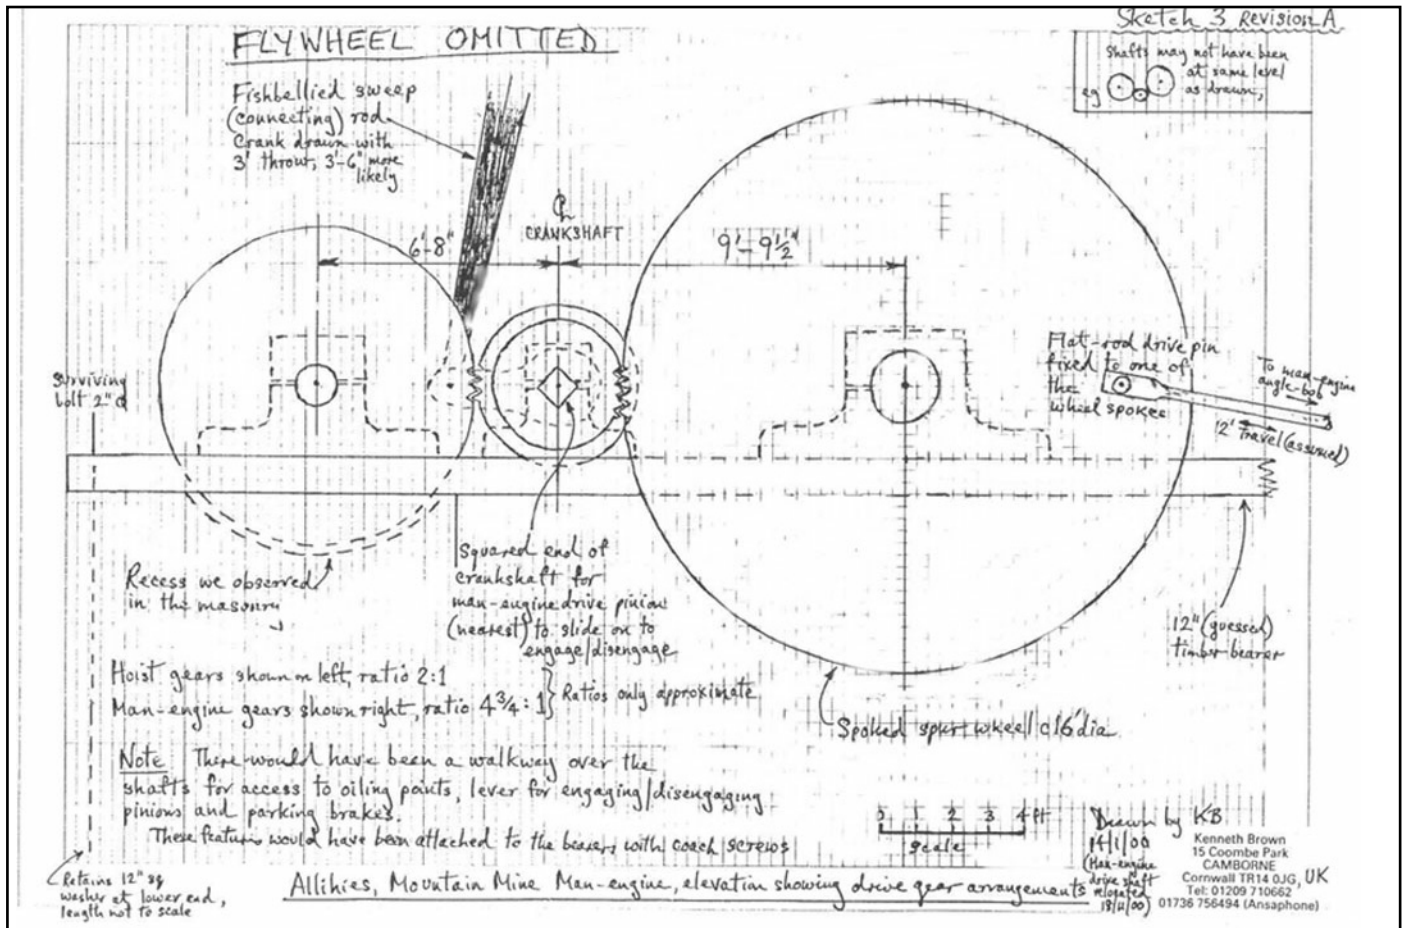 Sketch 3 Revision A
FLYWHEEL OMITTED
Shafts may not have been
at same level
eg
as drawn,
Fishbellied sweep
(connecting) rod
Crank drawn with
3' throw, 3'-6" more
likely
℄
CRANKSHAFT
6'-8"
9'-9½"
Surviving
bolt 2"
Flat-rod drive pin
fixed to one of
the
wheel spokes
To man-engine
angle-bob
12' Travel (assumed)
Recess we observed
in the masonry
Squared end of
crankshaft for
man-engine drive pinion
(nearest) to slide on to
engage/disengage
12" (guessed)
timber bearer
Hoist gears shown on left, ratio 2:1
Man-engine gears shown right, ratio 4¾:1
Ratios only approximate
Spoked spur wheel c16' dia
Note There would have been a walkway over the
shafts for access to oiling points, lever for engaging/disengaging
pinions and parking brakes.
These features would have been attached to the bearers with coach screws
0 1 2 3 4 ft
scale
Drawn by KB
14/1/00
(Man-engine
drive shaft
relocated
18/11/00)
Kenneth Brown
15 Coombe Park
CAMBORNE
Cornwall TR14 0JG, UK
Tel: 01209 710662
01736 756494 (Ansaphone)
Retains 12" sq
washer at lower end,
length not to scale
Allihies, Mountain Mine Man-engine, elevation showing drive gear arrangements